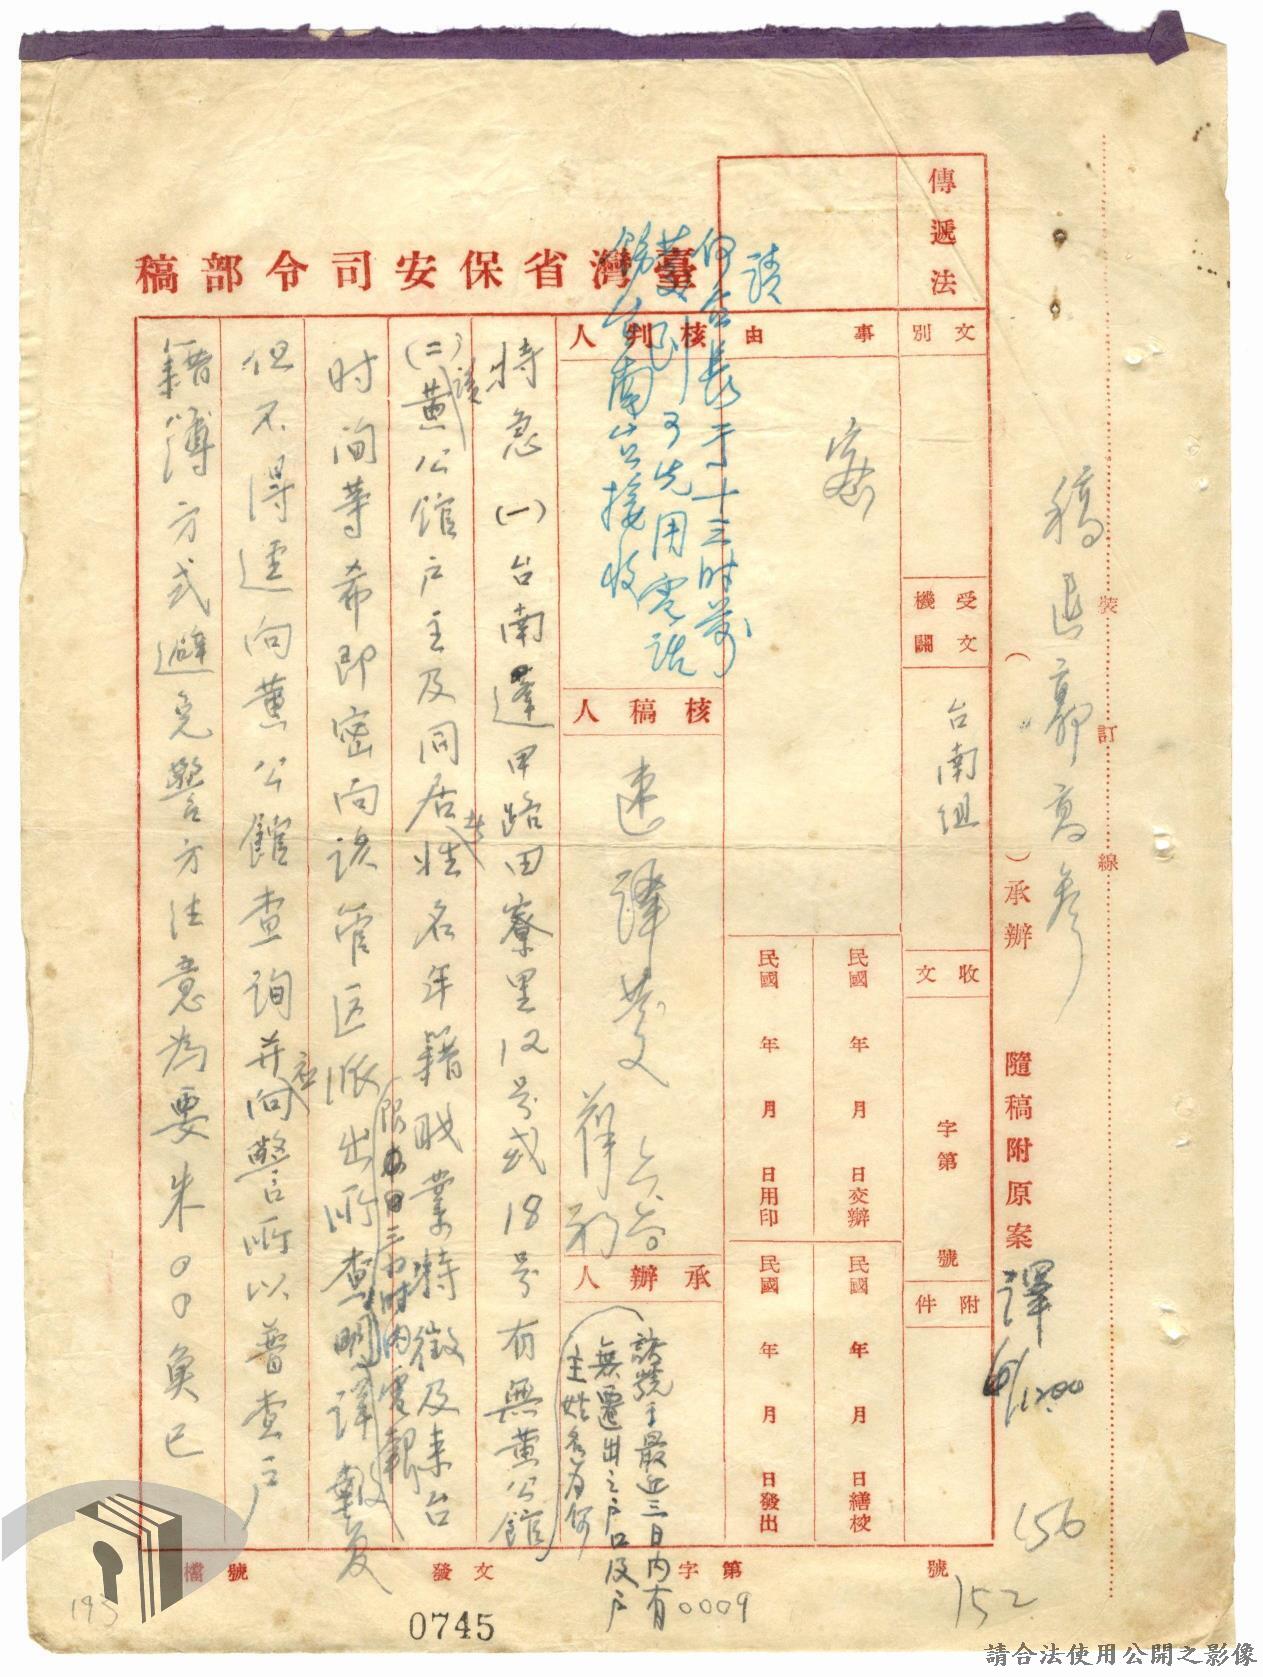 臺灣省保安司令部稿
傳遞法
文別
事由
密
受文機關
台南組
收文
字第 號
附件
民國 年 月 日交辦
民國 年 月 日繕校
民國 年 月 日用印
民國 年 月 日發出
核判人
核稿人
承辦人
裝訂線
( )承辦 隨稿附原案
稿退
譯
6/1200
156
請
何台長于十三时前
先用電話
台南台接收
速譯發
特急(一)台南蓬甲路田寮里12号或18号有無黄公館
(該號于最近三日內有
無遷出之户口及户
主姓名为何
(二)該黄公館户主及同居者姓名年籍职業特徵及来台
时间等希即密向該管区派出所查明詳報复
限本日三小时内電報
但不得逕向黄公館查詢并应向警所以普查户
籍簿方式避免警方注意為要朱00奐已
檔號
發文 字第 號
0009
152
193
0745
請合法使用公開之影像